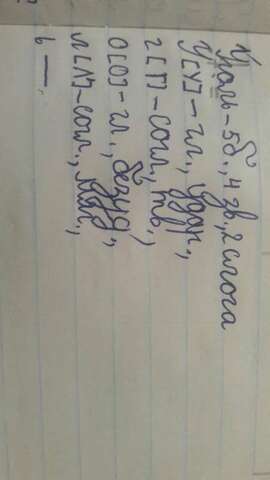 Уголь - 5б., 4 зв, 2 слога
У [У] - гл., удар.,
г [Г] - согл., тв.,
о [О] - гл., безуд,
л [Л] - согл., мяг.,
ь —